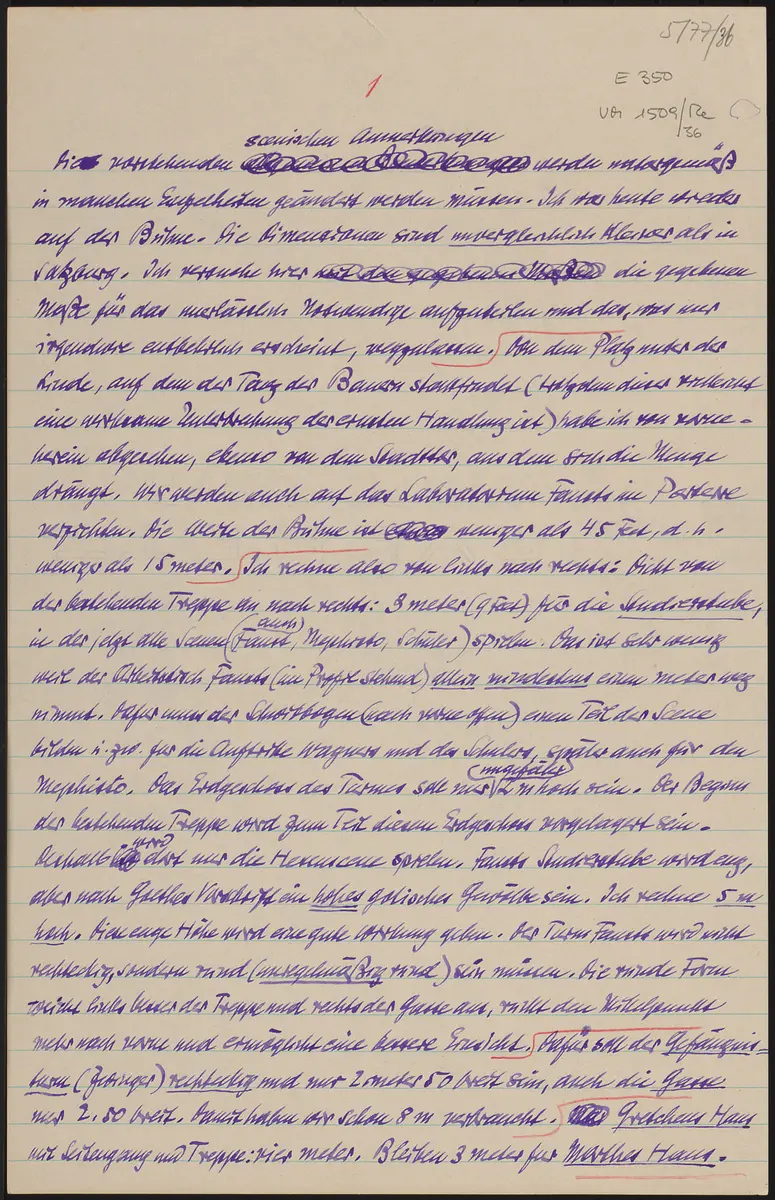 5/77/36
E 350
VOR 1509/Re
36
1
scenischen Anmerkungen
Die vorstehenden werden naturgemäß
in manchen Einzelheiten geändert werden müssen. Ich war heute wieder
auf der Bühne. Die Dimensionen sind unvergleichlich kleiner als in
Salzburg. Ich versuche hier die gegebenen
Maße für das unerlässlich Notwendige aufzuteilen und das, was nur
irgendwie entbehrlich erscheint, wegzulassen. Von dem Platz unter der
Linde, auf dem der Tanz der Bauern stattfindet (trotzdem dieser vielleicht
eine wirksame Unterbrechung der ernsten Handlung ist) habe ich von vorne-
herein abgesehen, ebenso von dem Stadttor, aus dem sich die Menge
drängt. Wir werden auch auf das Laboratorium Fausts im Parterre
verzichten. Die Weite der Bühne ist weniger als 45 Feet, d.h.
weniger als 15 meter. Ich rechne also von links nach rechts: Dicht von
der bestehenden Treppe an nach rechts: 3 meter (9 Feet) für die Studierstube,
in der jetzt alle Scenen (auch) Faust, Mephisto, Schüler) spielen. Das ist sehr wenig
weil der Arbeitstisch Fausts (im Profil stehend) allein mindestens einen meter weg
nimmt. Dafür muss der Schwibbogen (nach vorne offen) einen Teil der Scene
bilden u. zw. für die Auftritte Wagners und des Schülers, später auch für den
Mephisto. Das Erdgeschoss des Turmes soll nur (ungefähr) 2 m hoch sein. Der Beginn
der bestehenden Treppe wird zum Teil diesem Erdgeschoss vorgelagert sein.
Deshalb wird dort nur die Hexenscene spielen. Fausts Studierstube wird eng,
aber nach Goethes Vorschrift ein hohes gotisches Gewölbe sein. Ich rechne 5 m
hoch. Diese enge Höhe wird eine gute Wirkung geben. Der Turm Fausts wird nicht
rechteckig, sondern rund (unregelmäßig rund) sein müssen. Die runde Form
weicht links besser der Treppe und rechts der Gasse aus, rückt den Mittelpunkt
mehr nach vorne und ermöglicht eine bessere Einsicht. Dafür soll der Gefängnis-
turm (Zwinger) rechteckig und nur 2 meter 50 breit sein, auch die Gasse
nur 2.50 breit. Damit haben wir schon 8 m verbraucht. Gretchens Haus
mit Seitengang und Treppe: vier meter. Bleiben 3 meter für Marthes Haus.